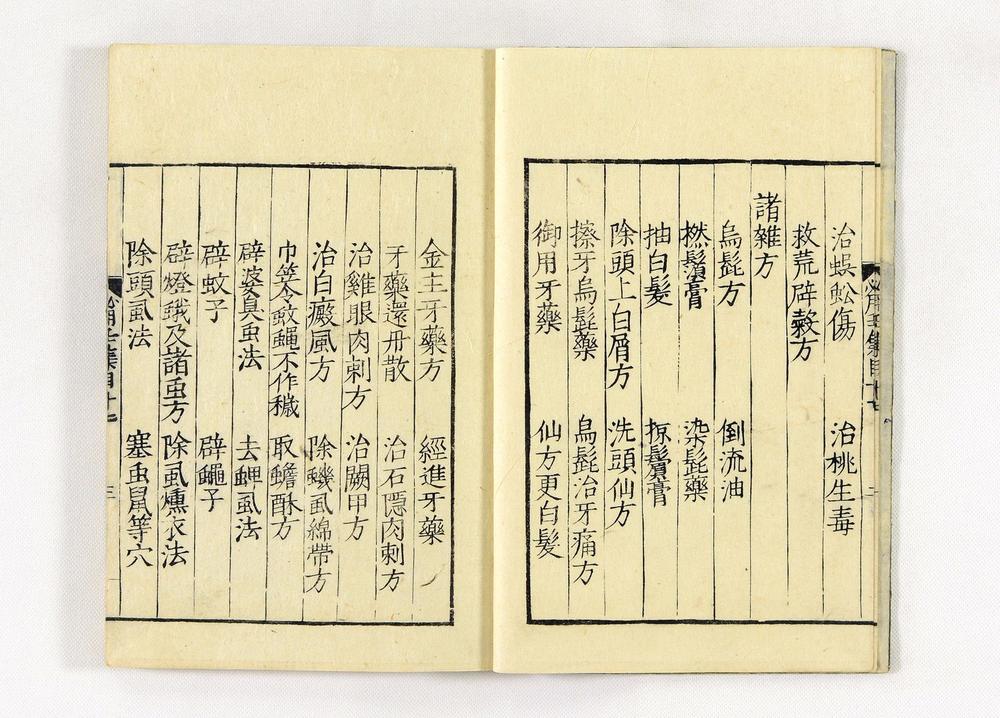 治蜈蚣傷　治桃生毒
救荒辟穀方
諸雜方
烏髭方　倒流油
撚鬚膏　染髭藥
抽白髮　掠鬢膏
除頭上白屑方　洗頭仙方
擦牙烏髭藥　烏髭治牙痛方
御用牙藥　仙方更白髮
金主牙藥方　經進牙藥
牙藥還丹散　治石隱肉刺方
治雞眼肉刺方　治闕甲方
治白癜風方　除蟣虱綿帶方
巾笭令蚊蠅不作穢　取蟾酥方
辟婆臭虫法　去蜱虱法
辟蚊子　辟蠅子
辟燈蛾及諸虫方　除虱燻衣法
除頭虱法　塞虫鼠等穴